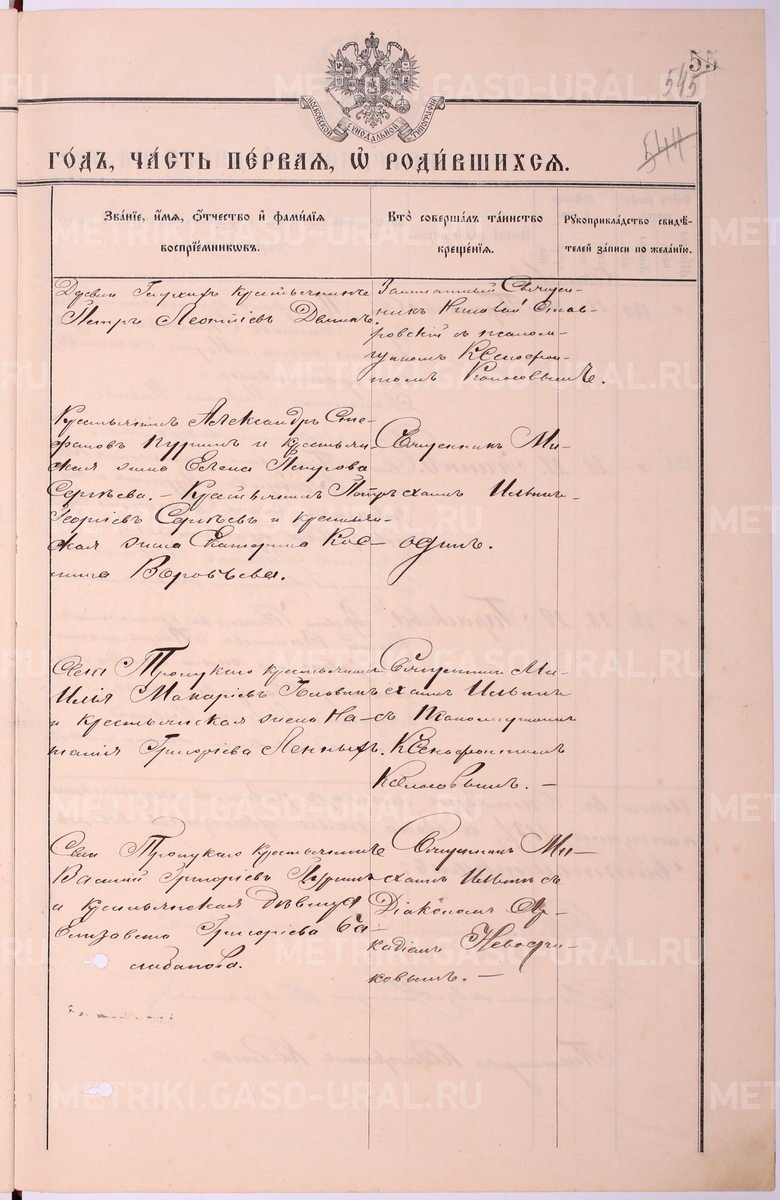 55
545
544
МОСКОВСКОЙ СѴНОДАЛЬНОЙ ТИПОГРАФІИ
ГО́ДЪ, ЧА́СТЬ ПЕ́РВАЯ, Ѡ҆ РОДИ́ВШИХСЯ.
Зва́нїе, и҆́мя, ѻ҆́тчество и҆ фами́лїя
воспрїе́мникѡвъ.
Кто̀ соверша́лъ та́инство
креще́нїя.
Рꙋкоприкла́дство свидѣ́-
телей за́писи по жела́нїю.
Деревни крестьянинъ
Петръ Леонтіевъ
Заштатный Священ-
никъ Николай Став-
ровскій съ псалом-
щикомъ Ксенофон-
томъ Колосовымъ.
Крестьянинъ Александръ Сте-
фановъ Пуринъ и крестьян-
ская жена Елена Петрова
Сергѣева. – Крестьянинъ Петръ
Георгіевъ Сергѣевъ и крестьян-
ская жена Екатерина Кос-
мина Воробьева.
Священникъ Ми-
хаилъ Ильинъ
одинъ.
Села Троицкаго крестьянинъ
Илія Макаріевъ Головинъ
и крестьянская жена На-
талія Григоріева Ленныхъ.
Священникъ Ми-
хаилъ Ильинъ
съ Псаломщикомъ
Ксенофонтомъ
Колосовымъ. –
Села Троицкаго крестьянинъ
Василій Григоріевъ Пуринъ
и крестьянская дѣвица
Елизавета Григоріева Ба-
лабанова.
Священникъ Ми-
хаилъ Ильинъ съ
Діакономъ Ар-
кадіемъ
ковымъ. –
METRIKI.GASO-URAL.RU